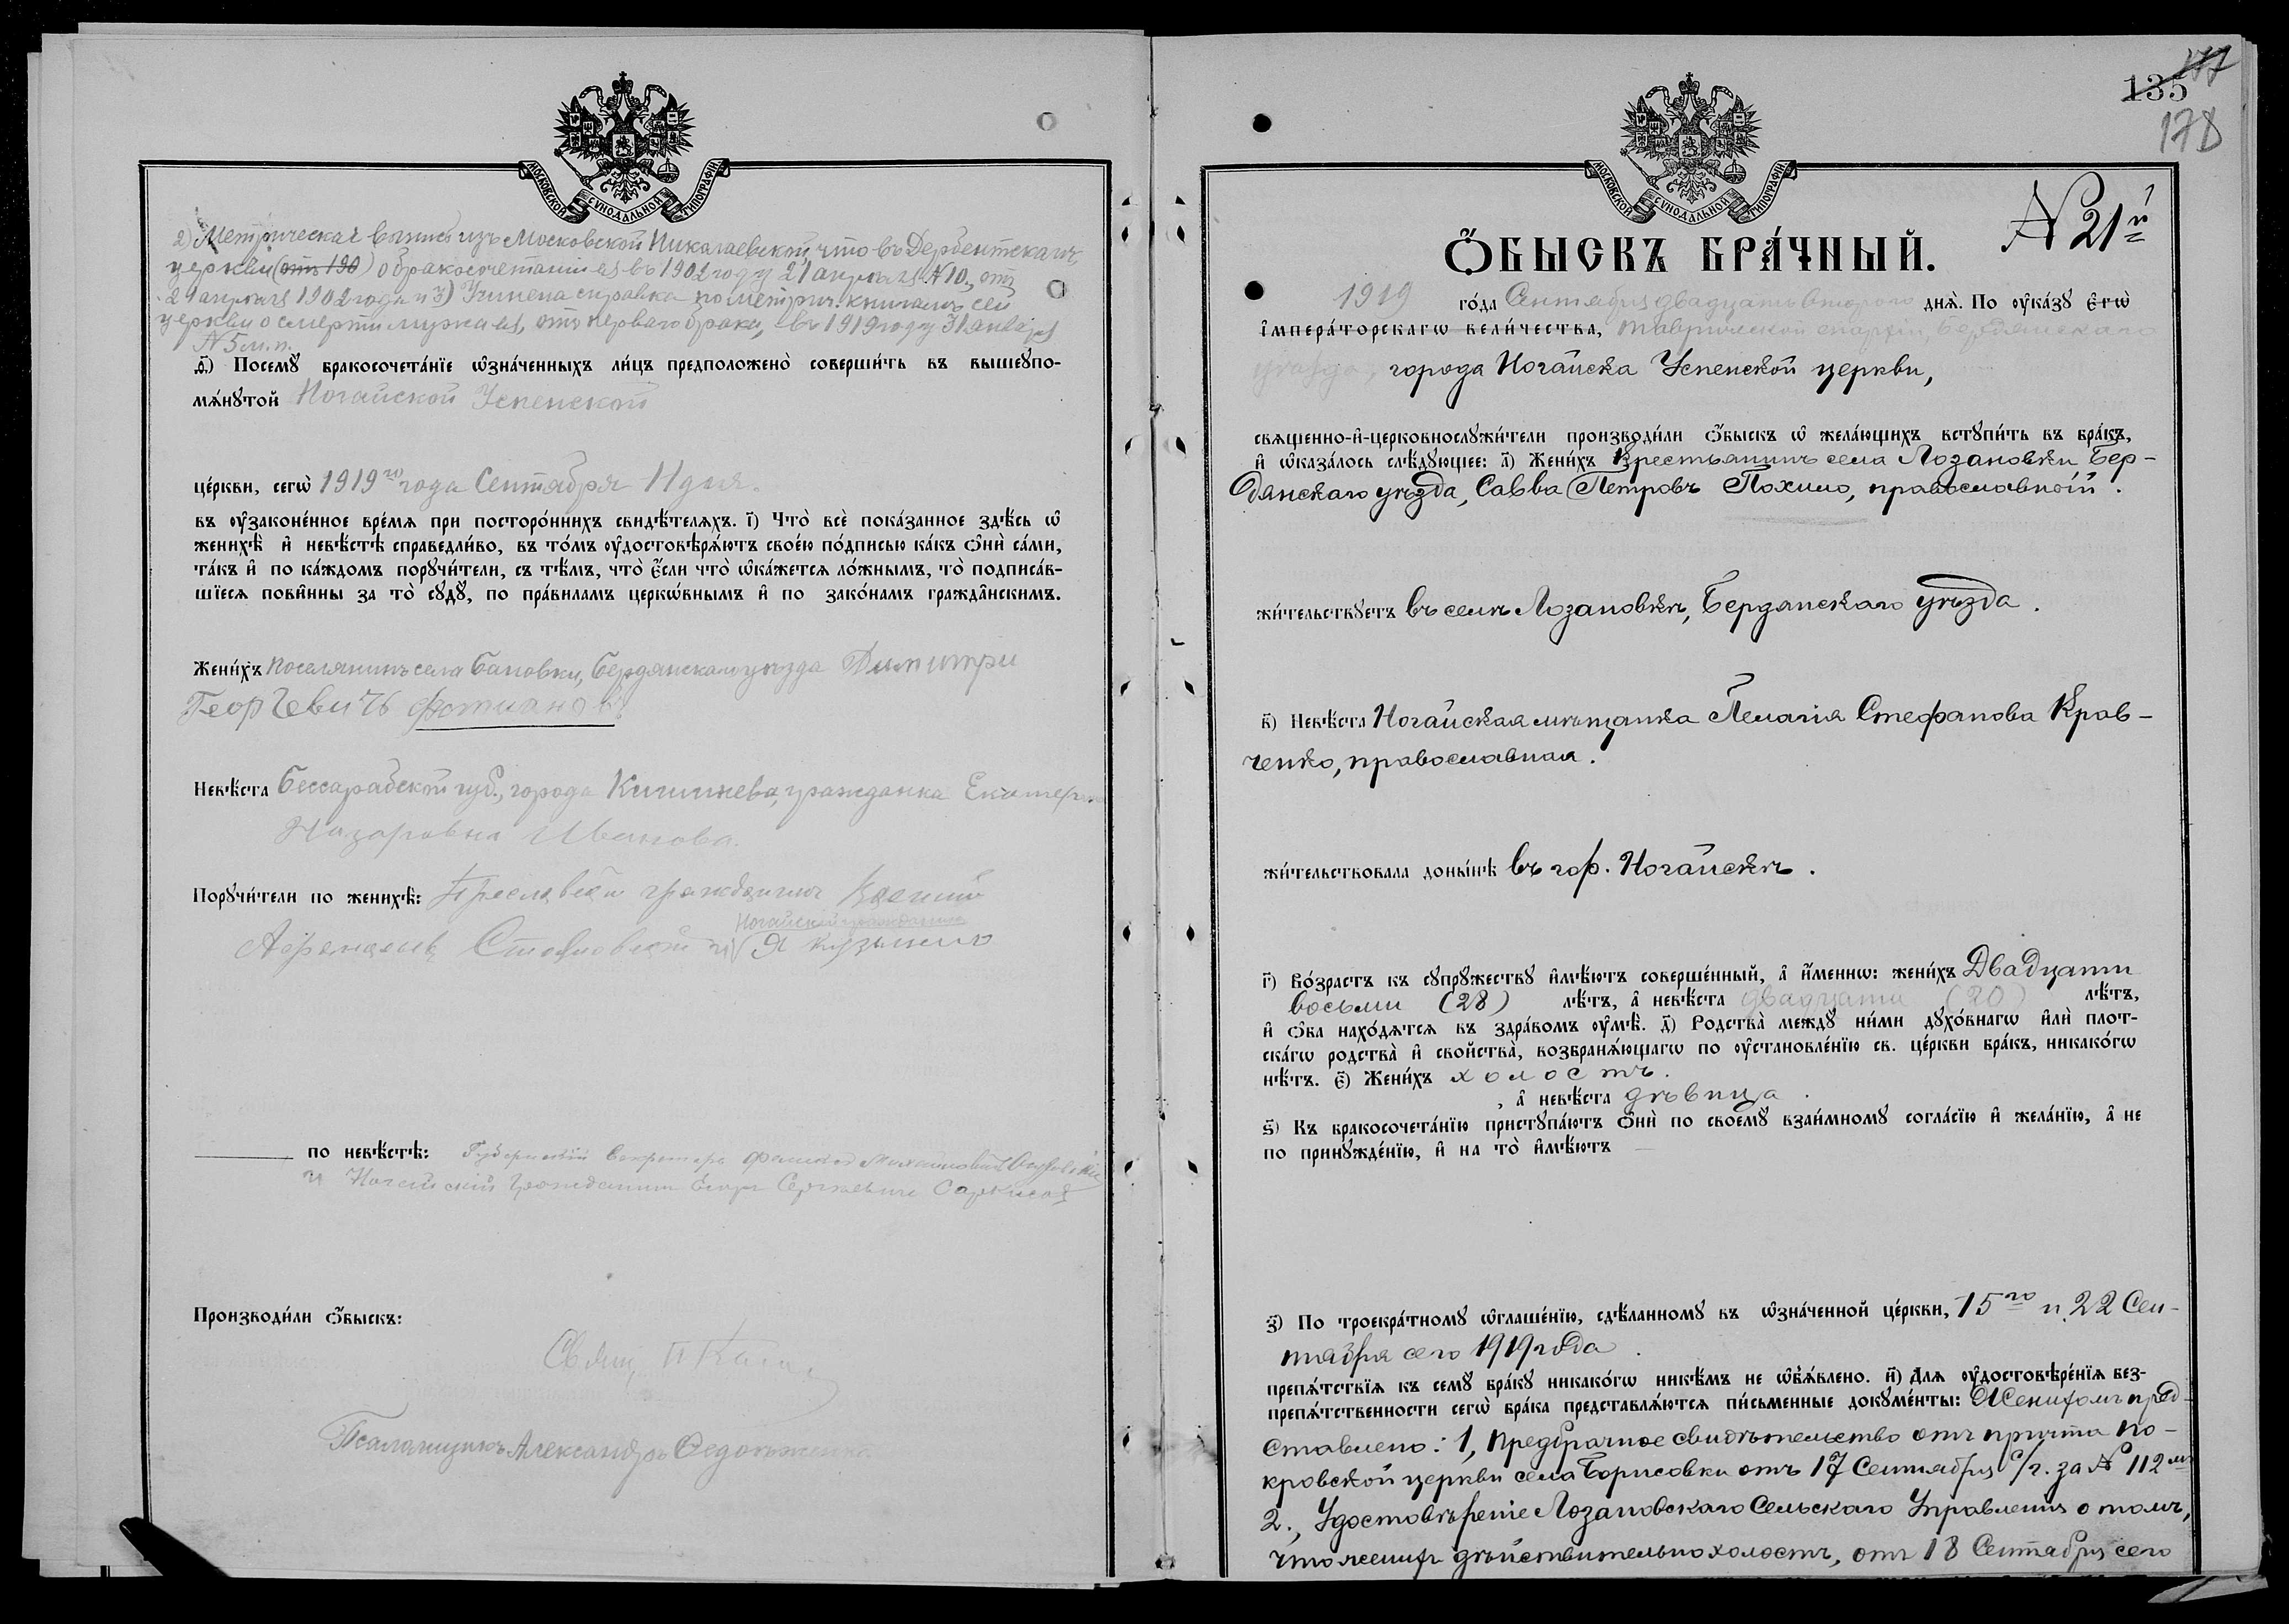 МОСКОВСКОЙ СѴНОДАЛЬНОЙ ТИПОГРАФІИ
2) Метрическая выпись изъ Московской Николаевской, что въ Дербентскамъ,
церкви (отъ 190) о бракосочетаніи ея въ 1902 году 21 апрѣля № 10, отъ
21 апрѣля 1902 года и 3) Учинена справка по метрич. книгамъ сей
церкви о смерти мужа ея, отъ перваго брака, въ 1919 году 31 января
№ 5 м.п.
ѳ҃) Посемꙋ бракосочета́нїе ѡ҆зна́ченныхъ ли́цъ предположено̀ соверши́ть въ вышеꙋпо-
мѧ́нꙋтой Ногайской Успенской
це́ркви, сегѡ̀ 1919го года Сентября 11 дня.
въ ѹ҆законе́нное вре́мѧ при посторо́ннихъ свидѣ́телѧхъ. і҃) Что̀ всѐ пока́занное здѣ́сь ѡ҆
женихѣ̀ и҆ невѣ́стѣ справедли́во, въ то́мъ ѹ҆достовѣрѧ́ютъ свое́ю по́дписью ка́къ ѻ҆нѝ са́ми,
та́къ и҆ по ка́ждомъ порꙋчи́тели, съ тѣ́мъ, что̀ є҆́сли что̀ ѡ҆ка́жетсѧ ло́жнымъ, то̀ подписа́в-
шїесѧ пови́нны за то̀ сꙋдꙋ̀, по пра́виламъ церко́внымъ и҆ по зако́намъ гражда́нскимъ.
Жени́хъ поселянинъ села Бановки, Бердянскаго уѣзда Димитри
Георгевичъ Фотиановъ
Невѣ́ста Бессарабской губ., города Кишинева, гражданка Екатер
Назаровна Иванова.
Порꙋчи́тели по женихѣ̀: Преславски гражданинъ
Ногайскій гражданинъ
Афанасьев и Я Кузьмино
по невѣ́стѣ: Губернскій Секретарь Михайлович
и Ногайский гражданин Егор Сергѣевичъ Саркисов
Производи́ли ѻ҆́быскъ:
Свящ. П Кали
Псаломщикъ Александръ
135 177
178
МОСКОВСКОЙ СѴНОДАЛЬНОЙ ТИПОГРАФІИ
№ 21й
Ѻ҆БЫСКЪ БРА́ЧНЫЙ.
1919 го́да Сентября двадцать второго днѧ̀. По ѹ҆ка́зꙋ є҆гѡ̀
і҆мпера́торскагѡ вели́чества, Таврической епархіи, Бердянскаго
уѣзда, города Ногайска Успенской церкви,
свѧщенно-и҆-церковнослꙋжи́тели производи́ли ѻ҆́быскъ ѡ҆ жела́ющихъ встꙋпи́ть въ бра́къ,
и҆ ѡ҆каза́лось слѣ́дꙋющее: а҃) Жени́хъ Крестьянинъ села Лозановки Бер-
дянскаго уѣзда, Савва Петровъ Похило, православный.
жи́тельствꙋетъ въ селѣ Лозановкѣ, Бердянскаго уѣзда.
в҃) Невѣ́ста Ногайская мѣщанка Пелагія Стефанова Крав-
ченко, православная.
жи́тельствовала доны́нѣ въ гор. Ногайскѣ.
г҃) Во́зрастъ къ сꙋпрꙋжествꙋ и҆мѣ́ютъ соверше́нный, а҆ и҆́меннѡ: жени́хъ Двадцати
восьми (28) лѣ́тъ, а҆ невѣ́ста двадцати (20) лѣ́тъ,
и҆ ѻ҆́ба нахо́дѧтсѧ въ здра́вомъ ѹ҆мѣ̀. д҃) Родства̀ междꙋ̀ ни́ми дꙋхо́внагѡ и҆лѝ плот-
ска́гѡ родства̀ и҆ свойства̀, возбранѧ́ющагѡ по ѹ҆становле́нїю св. це́ркви бра́къ, никако́гѡ
нѣ́тъ. є҃) Жени́хъ холостъ.
, а҆ невѣ́ста дѣвица.
ѕ҃) Къ бракосочета́нїю пристꙋпа́ютъ ѻ҆нѝ по своемꙋ̀ взаи́мномꙋ согла́сїю и҆ жела́нїю, а҆ не
по принꙋжде́нїю, и҆ на то̀ и҆мѣ́ютъ
з҃) По троекра́тномꙋ ѡ҆глаше́нїю, сдѣ́ланномꙋ въ ѡ҆зна́ченной це́ркви, 15го и 22 Сен-
тября сего 1919 года.
препѧ́тствїѧ къ семꙋ̀ бра́кꙋ никако́гѡ никѣ́мъ не ѡ҆б̾ѧ́влено. и҃) Длѧ ѹ҆достовѣре́нїѧ без-
препѧ́тственности сегѡ̀ бра́ка представлѧ́ютсѧ пи́сьменные докꙋме́нты: Женихомъ пред-
ставлено: 1, Предбрачное свидѣтельство отъ причта По-
кровской церкви села Борисовки отъ 17 Сентября с/г. за № 112м
2., Удостовѣреніе Лозановскаго Сельскаго Управленія о томъ,
что женихъ дѣйствительно холостъ, отъ 18 Сентября сего